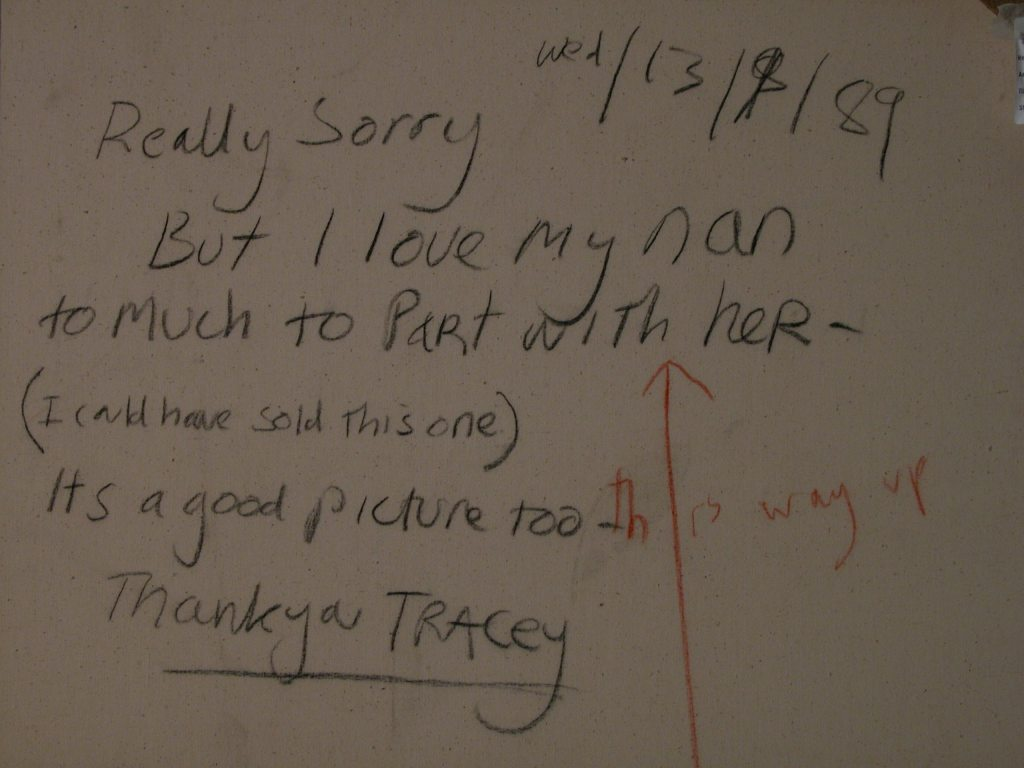 wed/13/9/89
Really Sorry
But I love my nan
to much to PART with heR-
(I could have sold this one)
Its a good picture too - this way up
Thankyou TRACey